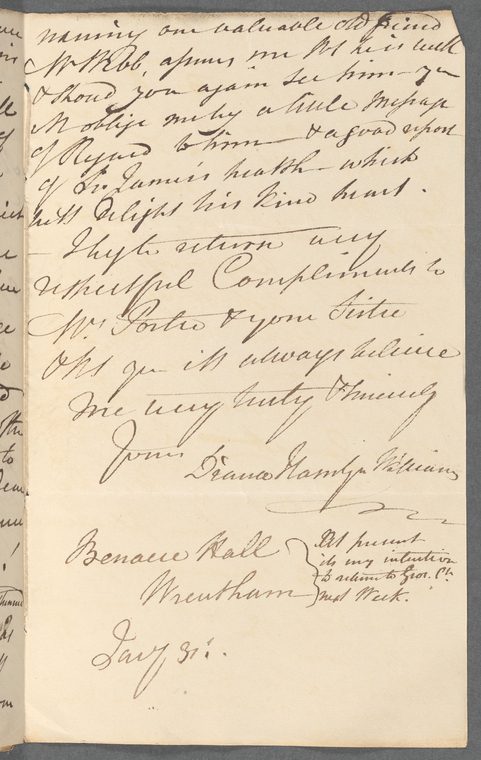 naming our valuable old friend
Mr Webb, assures me that he is well
& should you again see him - you
will oblige me by a little message
of Regard to him - & a good report
of Sr James's health - which
will delight his kind heart.
- I beg to return my
respectful Compliments to
Mrs Porter & your Sister
& that you will always believe
me very truly & sincerely
Yours
Diana Hamlyn Williams
Benacre Hall
Wrentham
At present
its my intention
to return to Gros. Pl.
next Week.
Jany 31st.